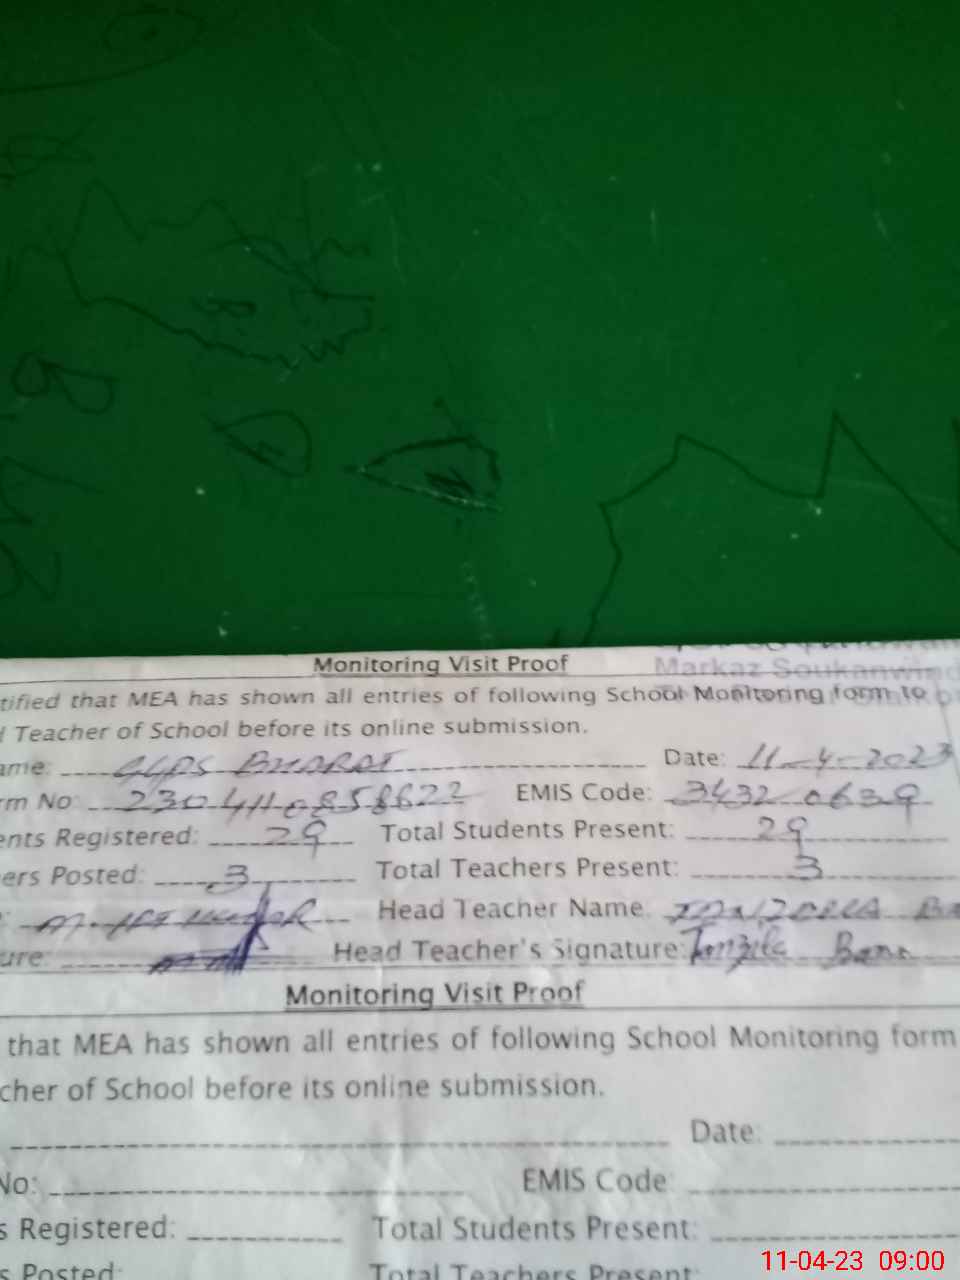 Monitoring Visit Proof
Markaz Soukanwind
tified that MEA has shown all entries of following School Monitoring form to
Teacher of School before its online submission.
ame: GGPS BHARAT Date: 11-4-2023
rm No: 2304110858622 EMIS Code: 34320639
ents Registered: 29 Total Students Present: 29
ers Posted: 3 Total Teachers Present: 3
Head Teacher Name:
ure: Head Teacher's Signature: Tanzila Bano
Monitoring Visit Proof
that MEA has shown all entries of following School Monitoring form
cher of School before its online submission.
Date:
No: EMIS Code:
s Registered: Total Students Present:
s Posted: Total Teachers Present:
11-04-23 09:00